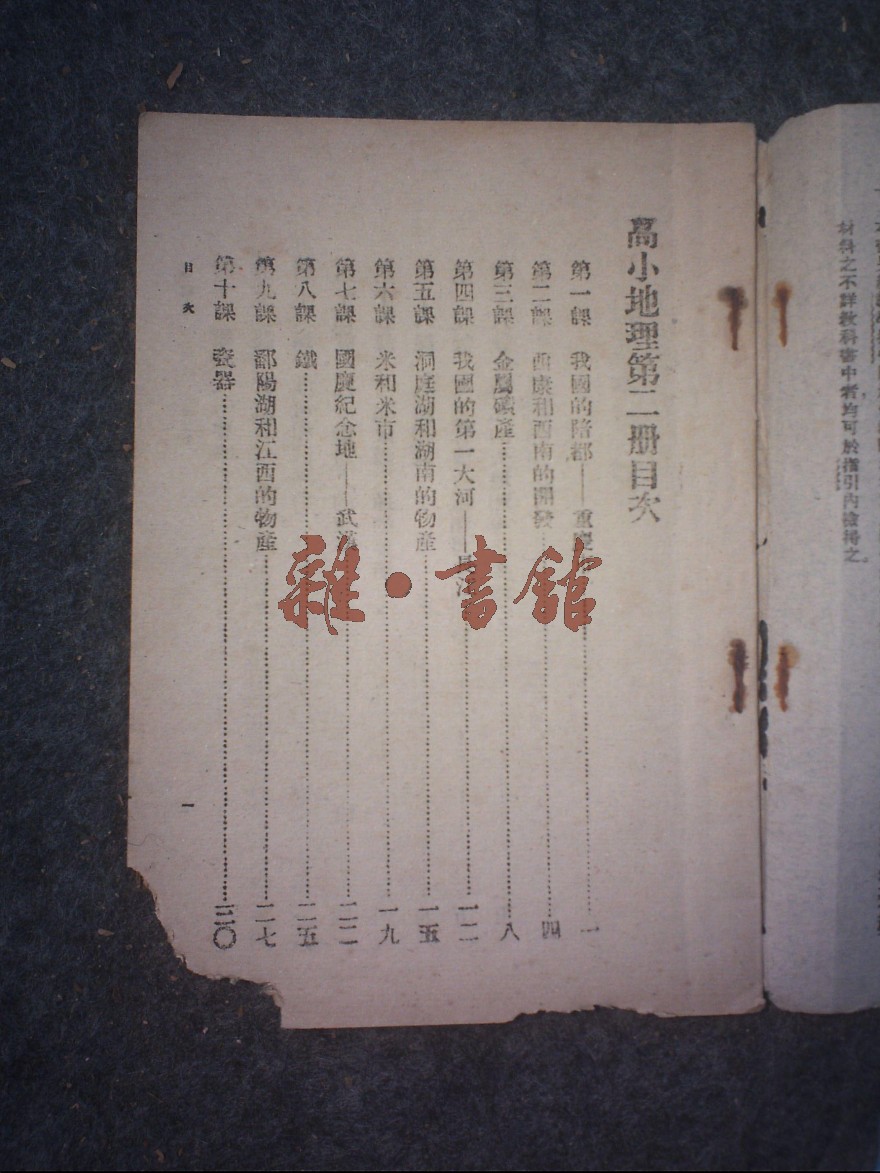 材料之不詳教科書中者均可於指引內檢得之。
高小地理第二册目次
第一課 我國的陪都——重慶……一
第二課 西康和西南的開發……四
第三課 金屬礦產……八
第四課 我國的第一大河——長江……一二
第五課 洞庭湖和湖南的物產……一五
第六課 米和米市……一九
第七課 國慶紀念地——武漢……二二
第八課 鐵……二五
第九課 鄱陽湖和江西的物產……二七
第十課 瓷器……三〇
目次 一
雜·書館